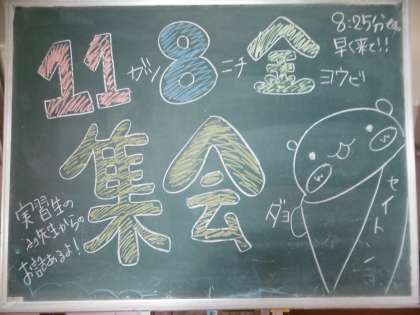 11ガツ8ニチ金ヨウビ
8:25分
早く来て!!
集会
ダヨ
セイトン
実習生の
先生からの
お話あるよ!